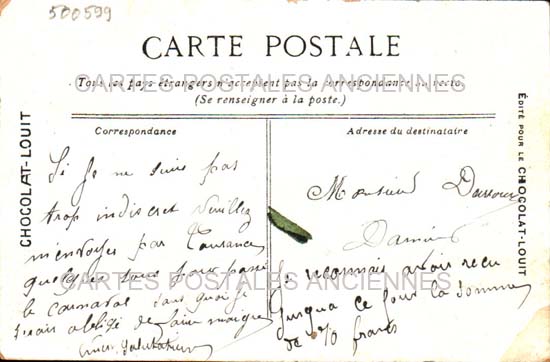 500599
CARTE POSTALE
Tous les pays étrangers n'acceptent pas la correspondance au recto.
(Se renseigner à la poste.)
CARTES POSTALES ANCIENNES
Correspondance
Adresse du destinataire
CHOCOLAT-LOUIT
ÉDITÉ POUR LE CHOCOLAT-LOUIT
Si Je ne suis pas
trop indiscret Veuillez
m'envoyer par
quelques sous pour passer
le carnaval sans quoi je
serais obligé de faire maigre
Monsieur
Damien
Je reconnais avoir recu
Jusqua ce jour la somme
de francs
CARTES POSTALES ANCIENNES